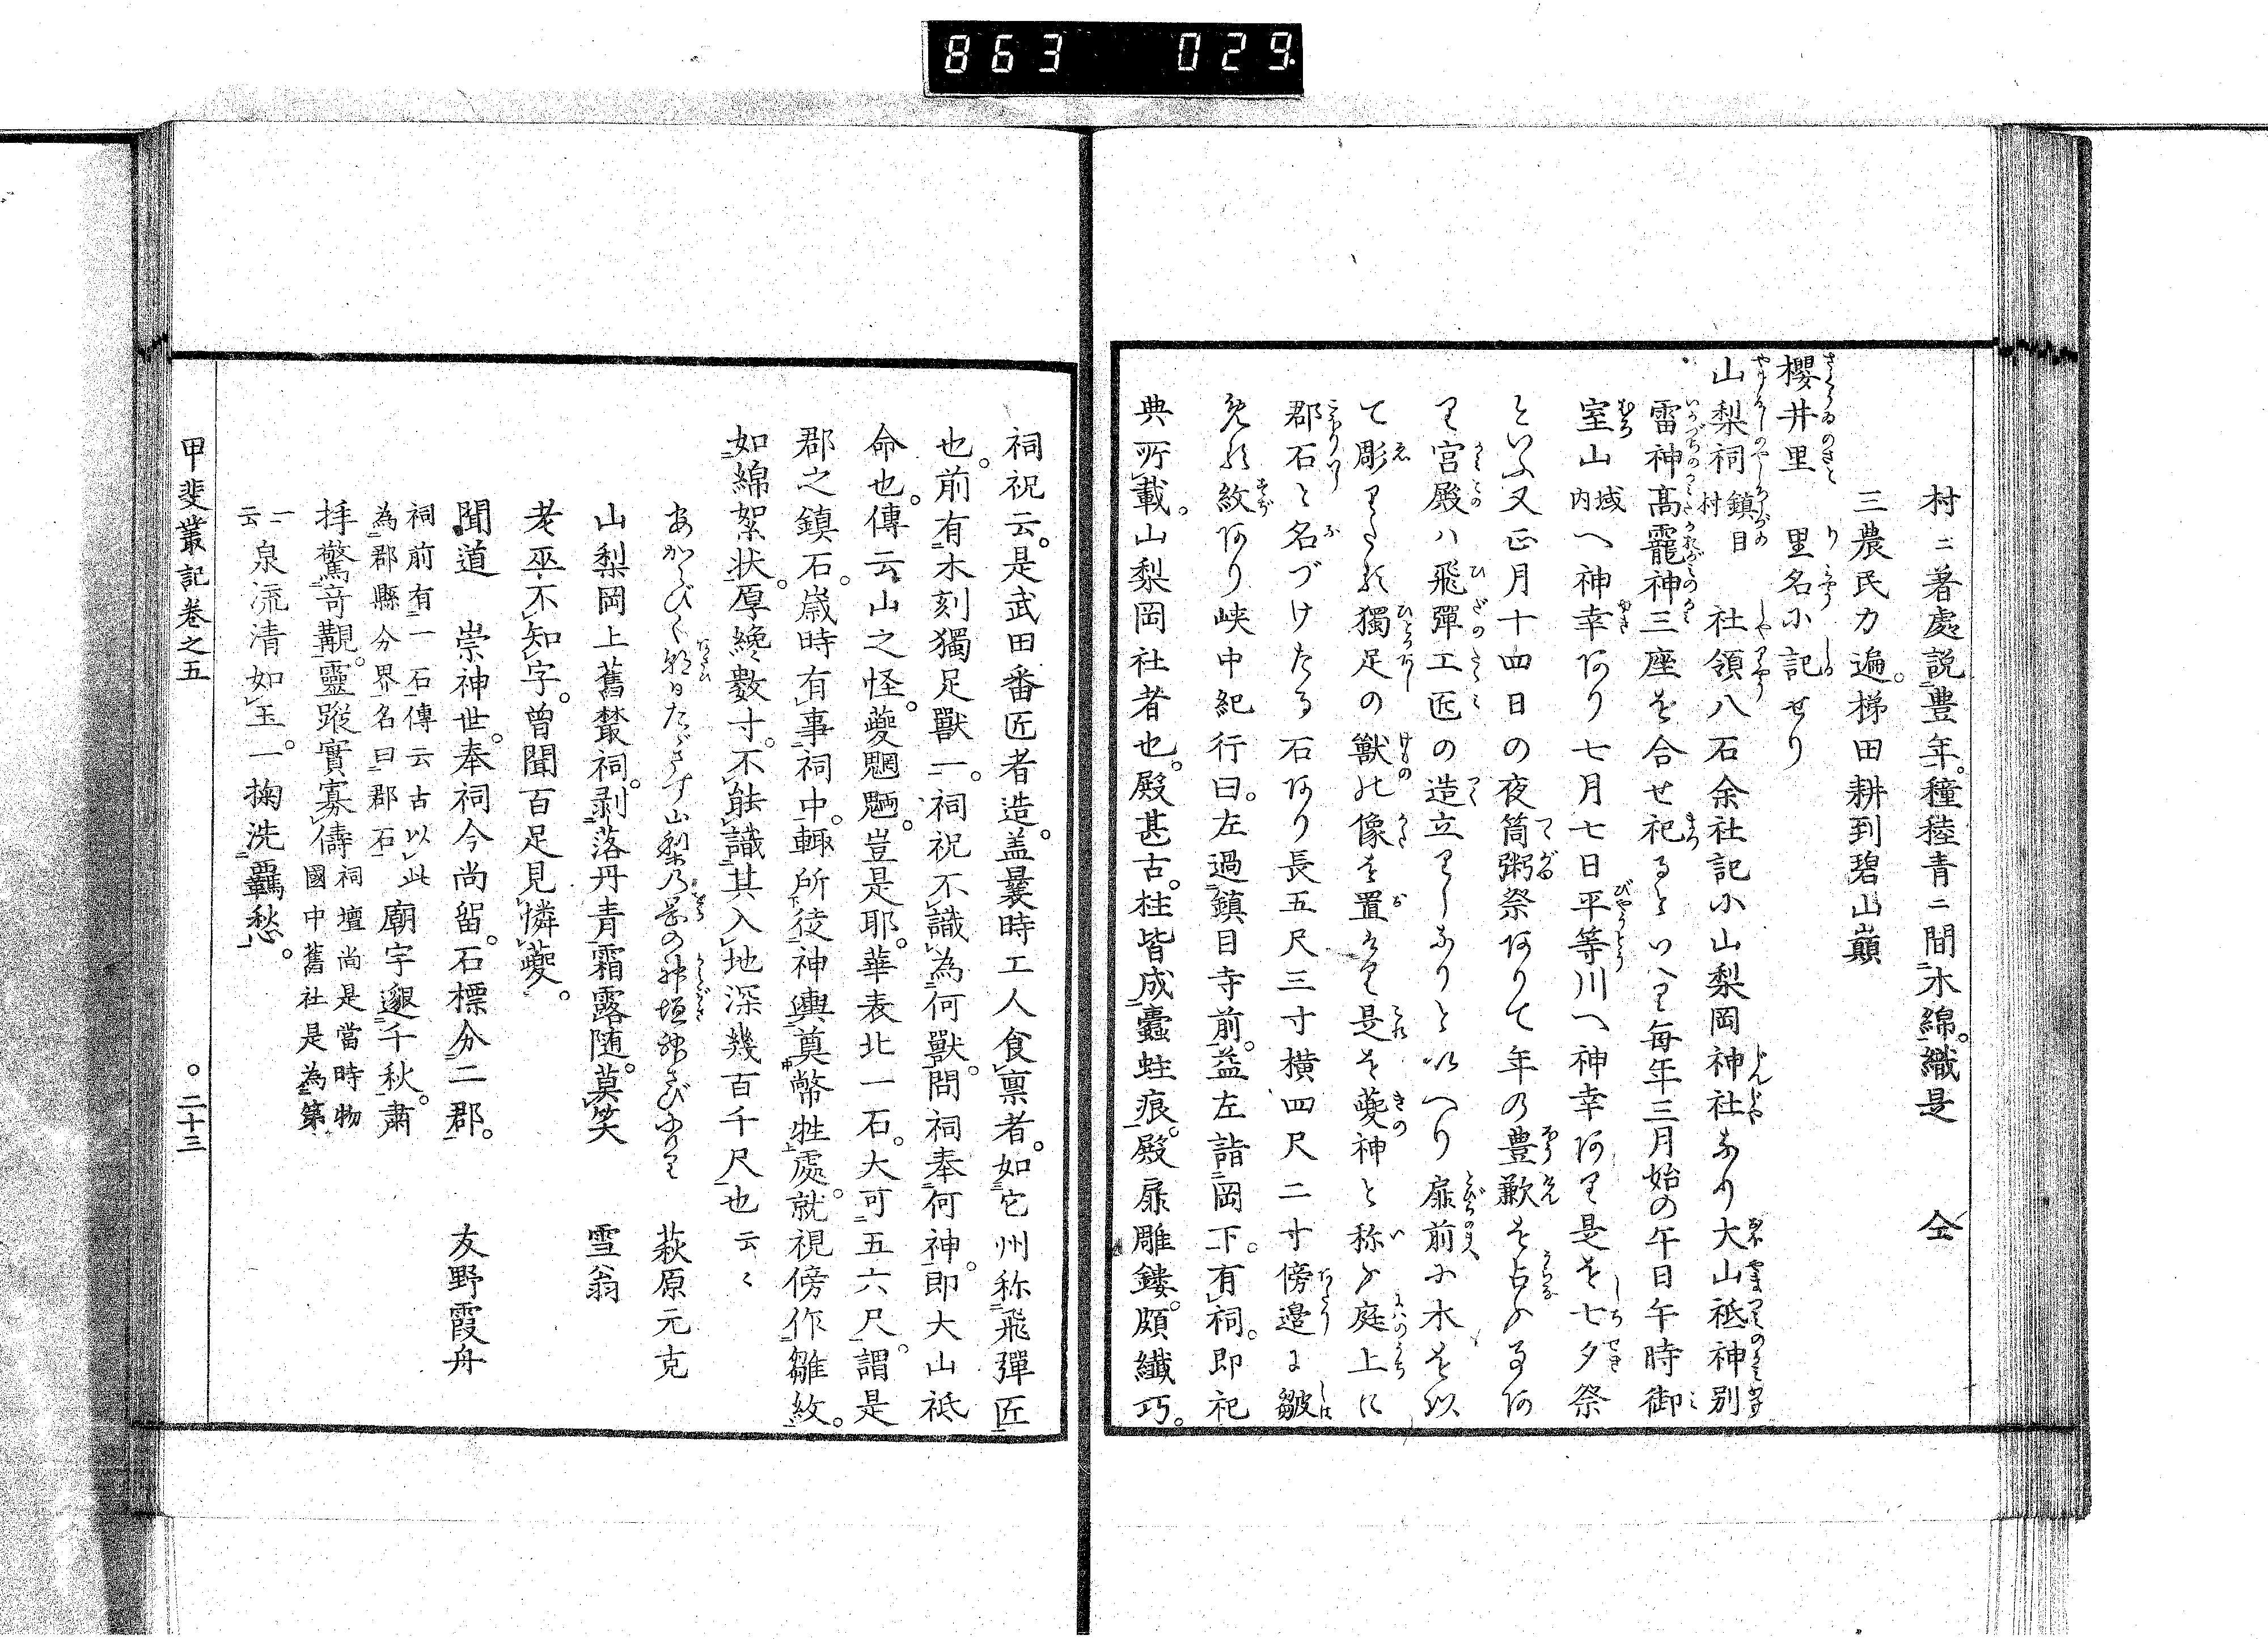 863 029
村ニ著處説豊年。穜稑青ニ間木綿。織是　仝
三農民力遍。梯田耕到碧山巓
櫻井里　里名小記せり
山梨祠 鎮目村　社領八石余社記小山梨岡神社なり大山祗神別
雷神高龗神三座を合せ祀るといへり毎年三月始の午日午時御
室山 域内 へ神幸あり七月七日平等川へ神幸あり是を七夕祭
といふ又正月十四日の夜筒粥祭ありて年の豊歉を占ふるあ
り宮殿ハ飛彈工匠の造立りしなりと以へり扉前に木を以
て彫りたる獨足の獣の像を置けり是を夔神と称ふ庭上に
郡石と名づけたる石あり長五尺三寸横四尺二寸傍邉に皺
紋あり峡中紀行曰。左過鎮目寺前。益左詣岡下。有祠。即祀
典所載。山梨岡社者也。殿甚古。柱皆成蠹蛀痕。殿扉雕鏤。頗纖巧。
祠祝云。是武田番匠者造。盖曩時工人食禀者。如它州称飛彈匠
也。前有木刻獨足獸一。祠祝不識為何獸。問祠奉何神。即大山祗
命也。傳云山之怪。夔魍魎。豈是耶。華表北一石。大可五六尺。謂是
郡之鎮石。歳時有事祠中。輙所徒神輿奠幣牲處。就視傍作皺紋。
如綿絮状。厚纔數寸。不能識其入地深幾百千尺也云〻
あかくびく朝日たゞさす山梨乃岡の神垣神さびにけり　萩原元克
山梨岡上舊叢祠。剥落丹青霜露随。莫笑　雪翁
老巫不知字。曽聞百足見憐夔。
聞道　崇神世。奉祠今尚留。石標分二郡。　友野霞舟
祠前有一石傳云古以此為郡縣分界名曰郡石 廟宇邈千秋。肅
拝驚奇觀。靈蹤實寡儔 祠壇尚是當時物國中舊社是為第
一云 泉流清如玉。一掬洗羈愁。
甲斐叢記巻之五　○二十三